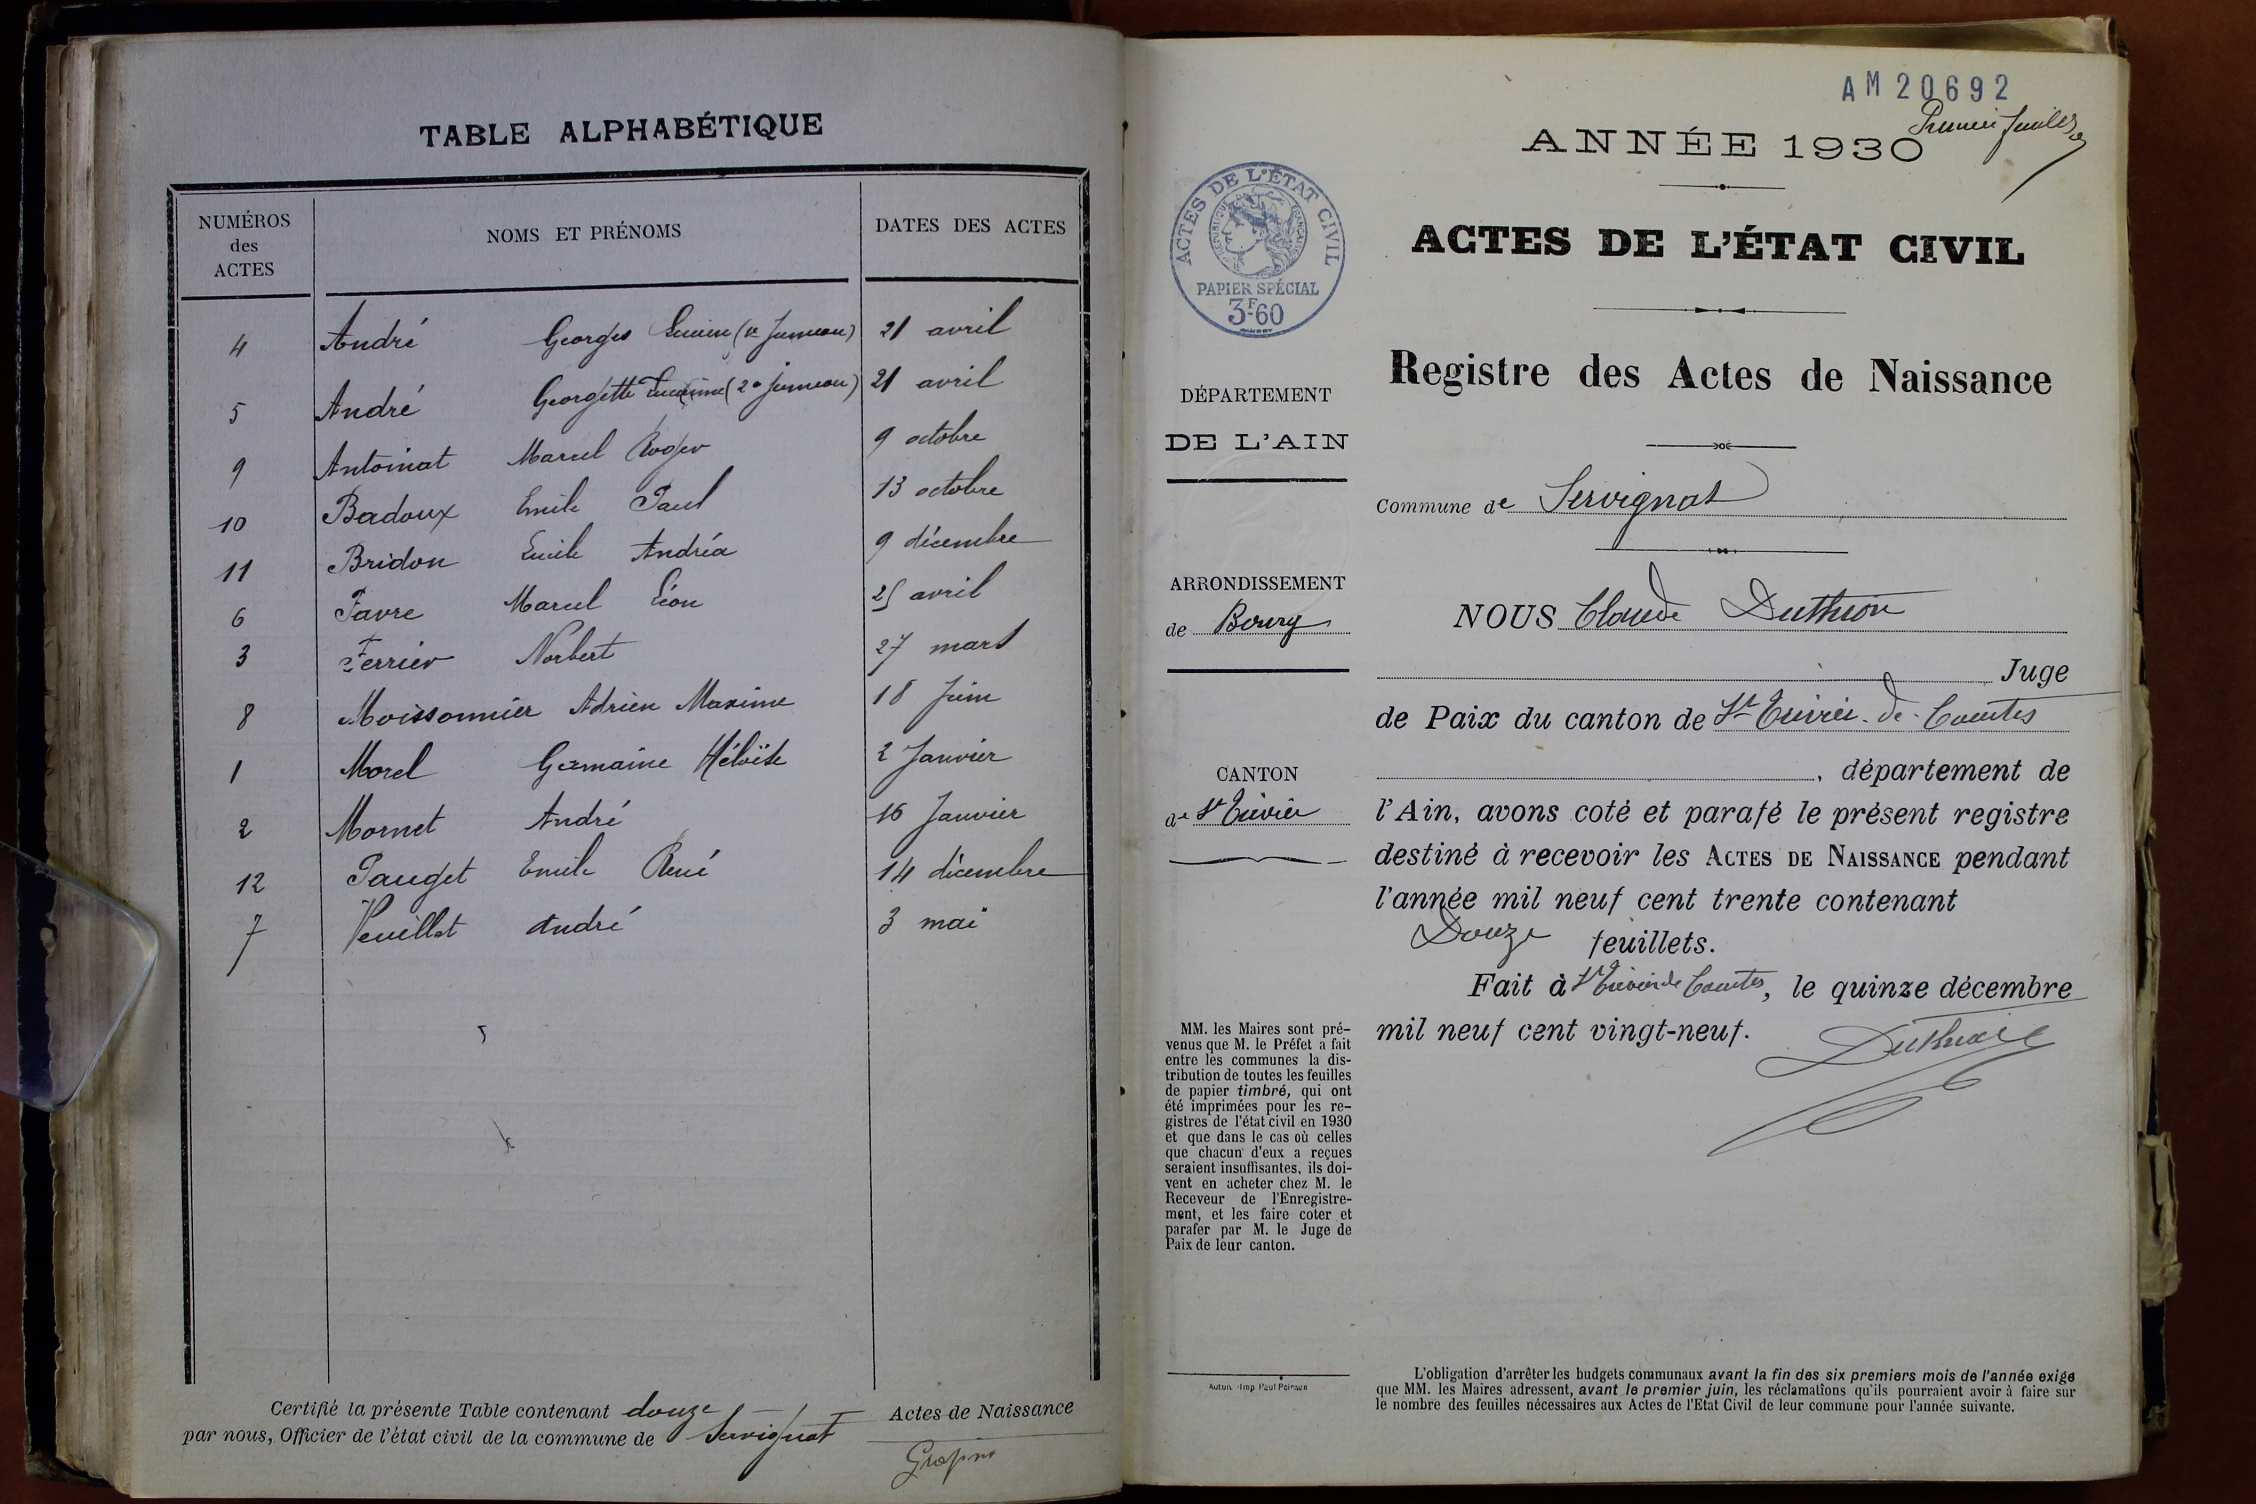 TABLE ALPHABÉTIQUE
NUMÉROS
des
ACTES
NOMS ET PRÉNOMS
DATES DES ACTES
4 André Georges Lucien (1r Jumeau) 21 avril
5 André Georgette Lucienne (2e Jumeau) 21 avril
9 Antoinat Marcel Roger 9 octobre
10 Badoux Emile Paul 13 octobre
11 Bridon Emile Andréa 9 décembre
6 Favre Marcel Léon 25 avril
3 Ferrier Norbert 27 mars
8 Moissonnier Adrien Maxime 18 Juin
1 Morel Germaine Héloïse 2 Janvier
2 Mornet André 16 Janvier
12 Pauget Emile René 14 décembre
7 Veuillet André 3 mai
Certifié la présente Table contenant douze Actes de Naissance
par nous, Officier de l'état civil de la commune de Servignat
AM 20692
Premier feuillet
ANNÉE 1930
ACTES DE L'ÉTAT CIVIL
RÉPUBLIQUE FRANÇAISE
PAPIER SPÉCIAL
3F.60
ACTES DE L'ÉTAT CIVIL
Registre des Actes de Naissance
DÉPARTEMENT
DE L'AIN
ARRONDISSEMENT
de Bourg
CANTON
de St Trivier
Commune de Servignat
NOUS Claude Duthion
Juge
de Paix du canton de St Trivier-de-Courtes
, département de
l'Ain, avons coté et parafé le présent registre
destiné à recevoir les ACTES DE NAISSANCE pendant
l'année mil neuf cent trente contenant
Douze feuillets.
Fait à St Trivier de Courtes, le quinze décembre
mil neuf cent vingt-neuf.
MM. les Maires sont pré-
venus que M. le Préfet a fait
entre les communes la dis-
tribution de toutes les feuilles
de papier timbré, qui ont
été imprimées pour les re-
gistres de l'état civil en 1930
et que dans le cas où celles
que chacun d'eux a reçues
seraient insuffisantes, ils doi-
vent en acheter chez M. le
Receveur de l'Enregistre-
ment, et les faire coter et
parafer par M. le Juge de
Paix de leur canton.
Autun. - Imp. Paul Poirson
L'obligation d'arrêter les budgets communaux avant la fin des six premiers mois de l'année exige
que MM. les Maires adressent, avant le premier juin, les réclamations qu'ils pourraient avoir à faire sur
le nombre des feuilles nécessaires aux Actes de l'Etat Civil de leur commune pour l'année suivante.